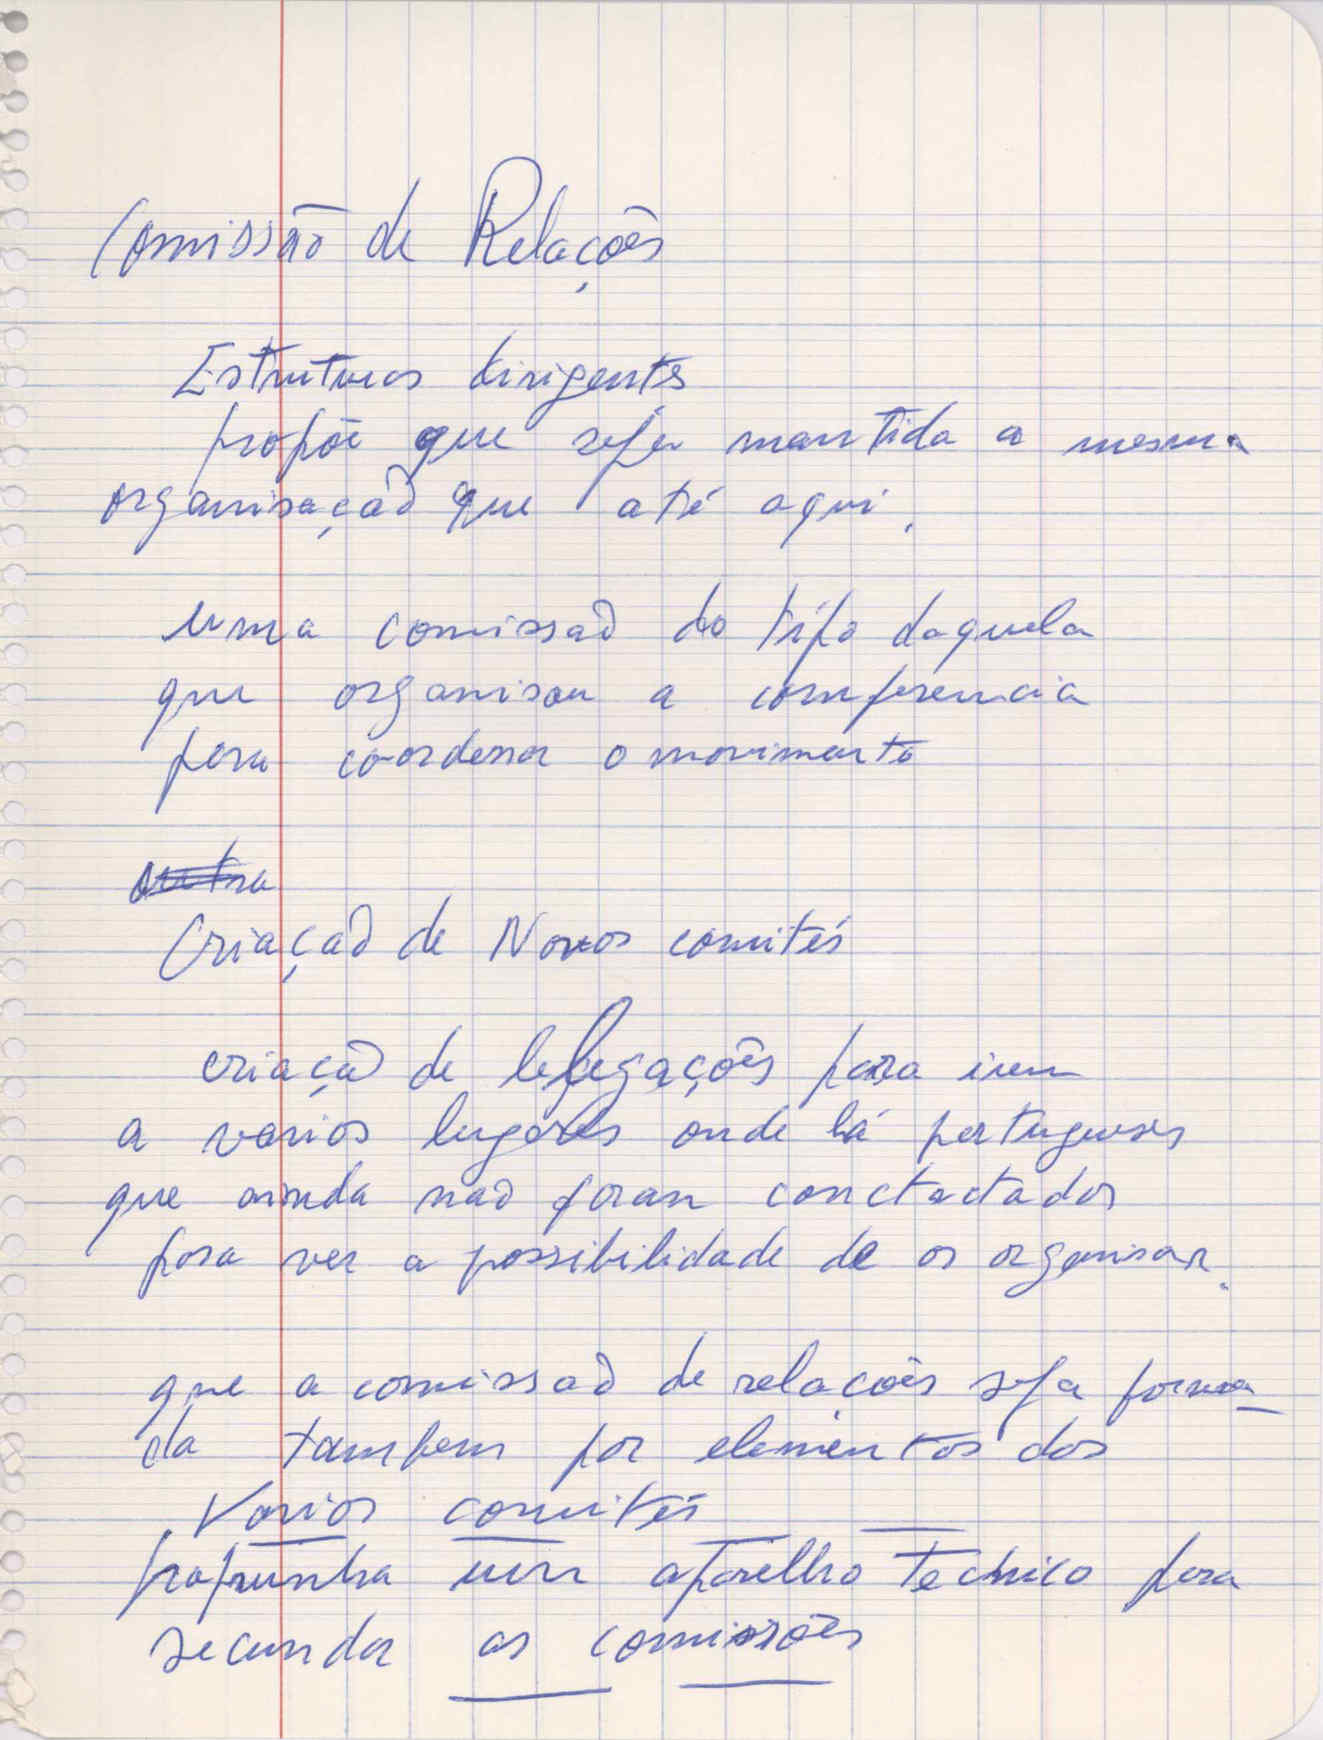 Comissão de Relações
Estruturas dirigentes
propõe que seja mantida a mesma
organisação que até aqui.
uma comissão do tipo daquela
que organisou a conferencia
para co-ordenar o movimento
outra
Criação de Novos comités
criação de delegações para irem
a varios lugares onde há portugueses
que ainda não foram conctactados
para ver a possibilidade de os organisar.
que a comissão de relações seja forma_
da tambem por elementos dos
varios comités
propunha um aparelho Technico para
secundar as comissões